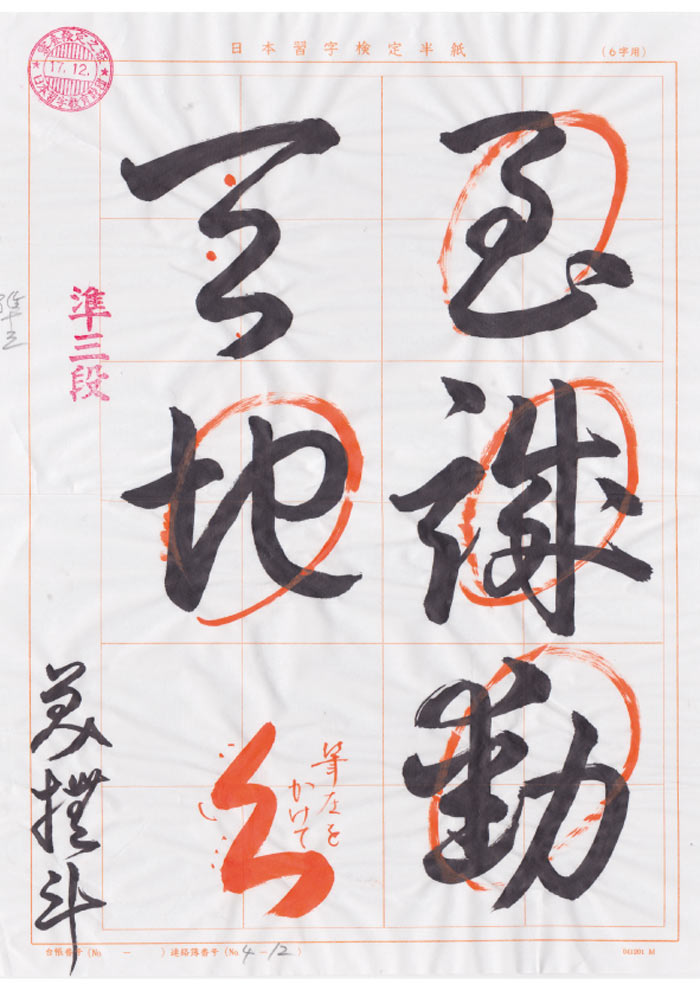 日本習字検定半紙
(6字用)
17.12.
至誠動
天地
筆圧を
かけて
準三段
準三
台帳番号 (No － ) 連絡簿番号 (No 4－12)
041201 M